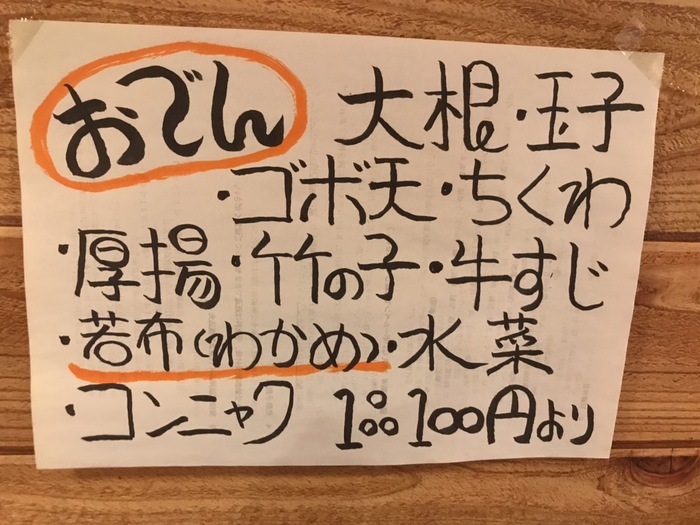 おでん 大根・玉子
・ゴボ天・ちくわ
・厚揚・竹の子・牛すじ
・若布(わかめ)・水菜
・コンニャク 100円より